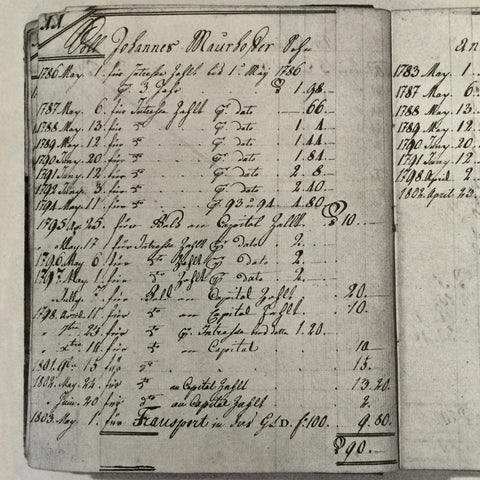 Soll Johannes Maurhoffer Sohn
1786 May. 1. für Intresse Zahlt bis 1st May 1786
3 Jahr . . . 1.98.
1787 May. 6. für Intresse Zahlt dato . 66.
1788 May. 13. für do dato 1. 4
1789 May. 12. für do dato 1.44
1790 20. für do dato 1.84
1791 12. für do dato 2.8
1792 3. für do dato 2.40
1794 May. 11 für do 93 & 94 4.80
1795 Ap. 25. für Bald an Capital Zahlt 10
" May. 17 für Intresse Zahlt dato 2.
1796 May 6 für do Zahlt dato 2.
1797 May. 1. für do Zahlt dato 2.
für Bald an Capital Zahlt 20.
1798 11 für do an Capital Zahlt 10.
" 25. für do Intresse dato 1.20
" 14. für do an Capital 10
1801. 15 für do 15.
1802. May. 24. für do an Capital Zahlt 13.20
" Juni 20 für do an Capital Zahlt 2.
1803. May 1. für Transport in das G:D. f:100. 9.80
90.
An
1783 May. 1.
1787 May 6
1788 May 13
1789 May. 12.
1790 20
1791 12
1798 April 2
1802. April 23.